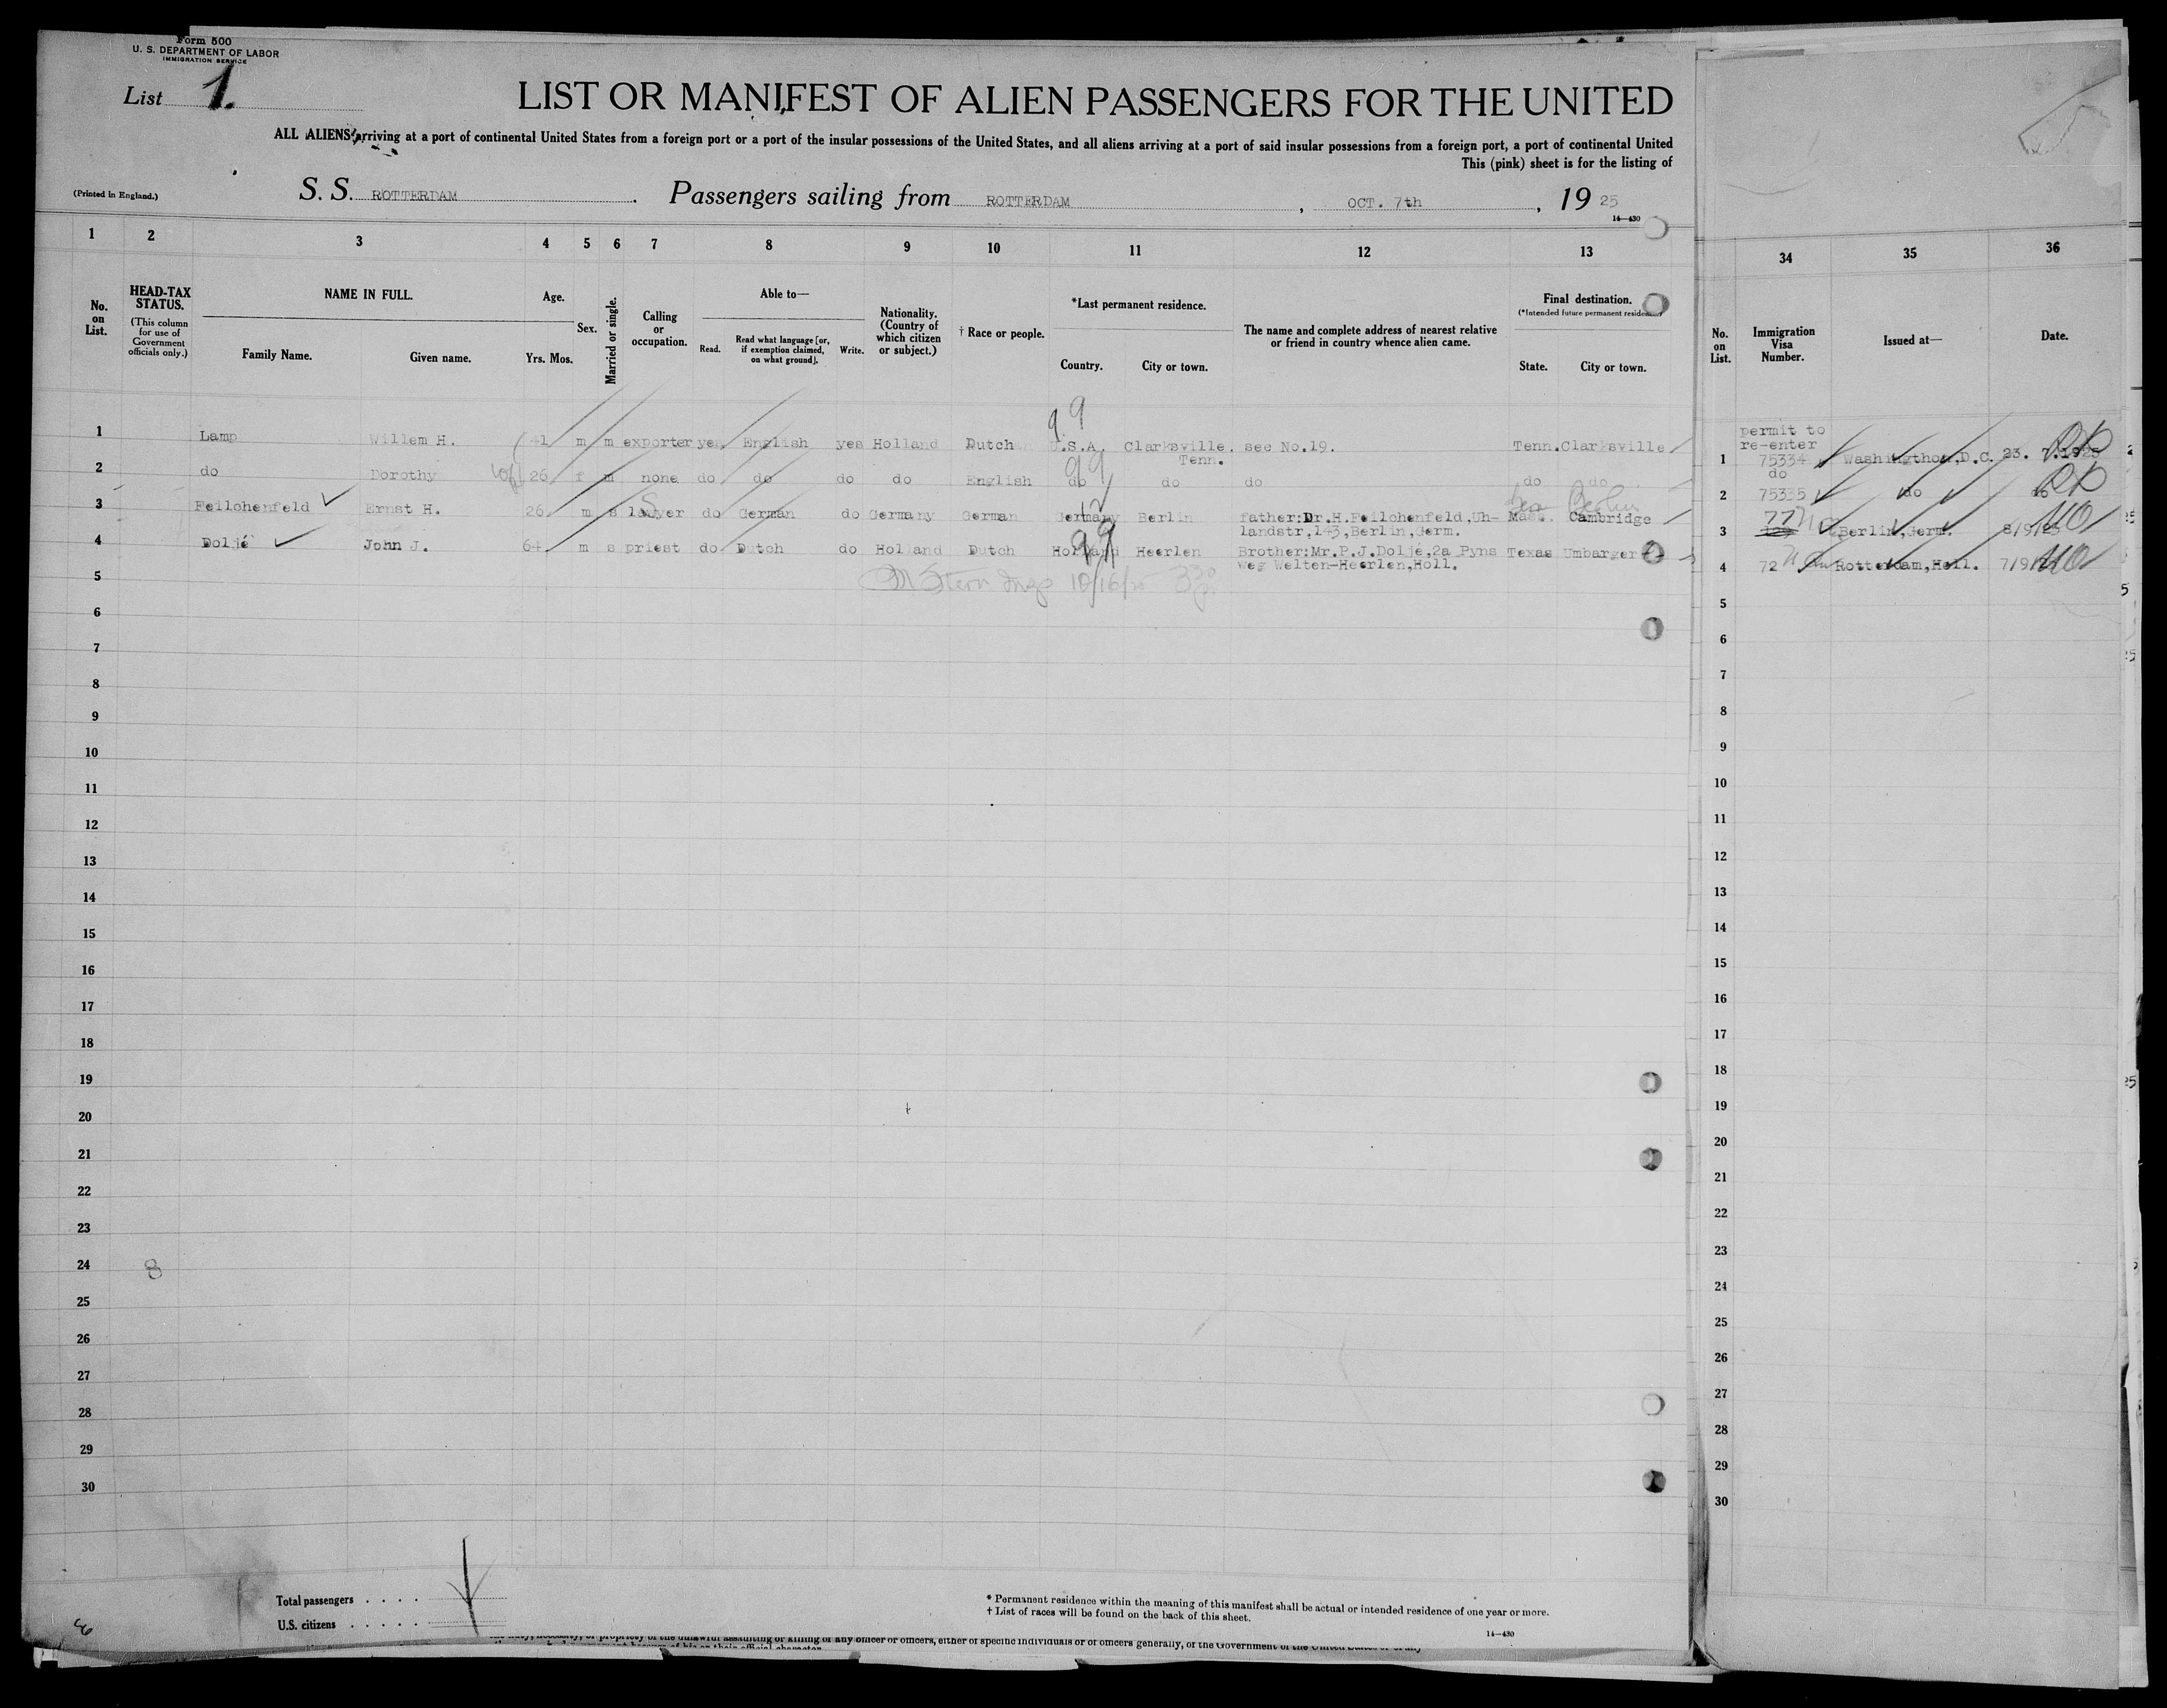 Form 500
U. S. DEPARTMENT OF LABOR
IMMIGRATION SERVICE
List 1.
LIST OR MANIFEST OF ALIEN PASSENGERS FOR THE UNITED
ALL ALIENS arriving at a port of continental United States from a foreign port or a port of the insular possessions of the United States, and all aliens arriving at a port of said insular possessions from a foreign port, a port of continental United
This (pink) sheet is for the listing of
(Printed in England.) S. S. ROTTERDAM. Passengers sailing from ROTTERDAM, OCT. 7th, 19 25
14—430
1 2 3 4 5 6 7 8 9 10 11 12 13 34 35 36
No. on List.
HEAD-TAX STATUS.
(This column for use of Government officials only.)
NAME IN FULL.
Family Name. Given name.
Age.
Yrs. Mos.
Sex.
Married or single.
Calling or occupation.
Able to—
Read. Read what language [or, if exemption claimed, on what ground]. Write.
Nationality. (Country of which citizen or subject.)
† Race or people.
*Last permanent residence.
Country. City or town.
The name and complete address of nearest relative or friend in country whence alien came.
Final destination.
(*Intended future permanent residence.)
State. City or town.
No. on List.
Immigration Visa Number.
Issued at—
Date.
1 Lamp Willem H. 41 m m exporter yes English yes Holland Dutch U.S.A. Clarksville, Tenn. see No.19. Tenn. Clarksville
2 do Dorothy wife 26 f m none do do do do English do do do do do
3 Feilchenfeld Ernst H. 26 m s lawyer do German do Germany German Germany Berlin father:Dr.H.Feilchenfeld,Uh-landstr,143,Berlin,Germ. Mass. Cambridge
Ger Berlin
4 Doljé John J. 64 m s priest do Dutch do Holland Dutch Holland Heerlen Brother:Mr.P.J.Doljé,2a Pyns weg Welten-Heerlen,Holl. Texas Umbarger
99
99
12
99
10/16/25
5
6
7
8
9
10
11
12
13
14
15
16
17
18
19
20
21
22
23
24 8
25
26
27
28
29
30
1 permit to re-enter 75334 Washington,D.C. 23. 7.1925
2 do 75335 do do
3 77 Berlin,Germ. 8/9/25
4 72 Rotterdam,Holl. 7/9
5
6
7
8
9
10
11
12
13
14
15
16
17
18
19
20
21
22
23
24
25
26
27
28
29
30
Total passengers . . . .
U.S. citizens . . . . .
* Permanent residence within the meaning of this manifest shall be actual or intended residence of one year or more.
† List of races will be found on the back of this sheet.
14—430
officer or officers, either of specific individuals or of officers generally, of the Government of the United States